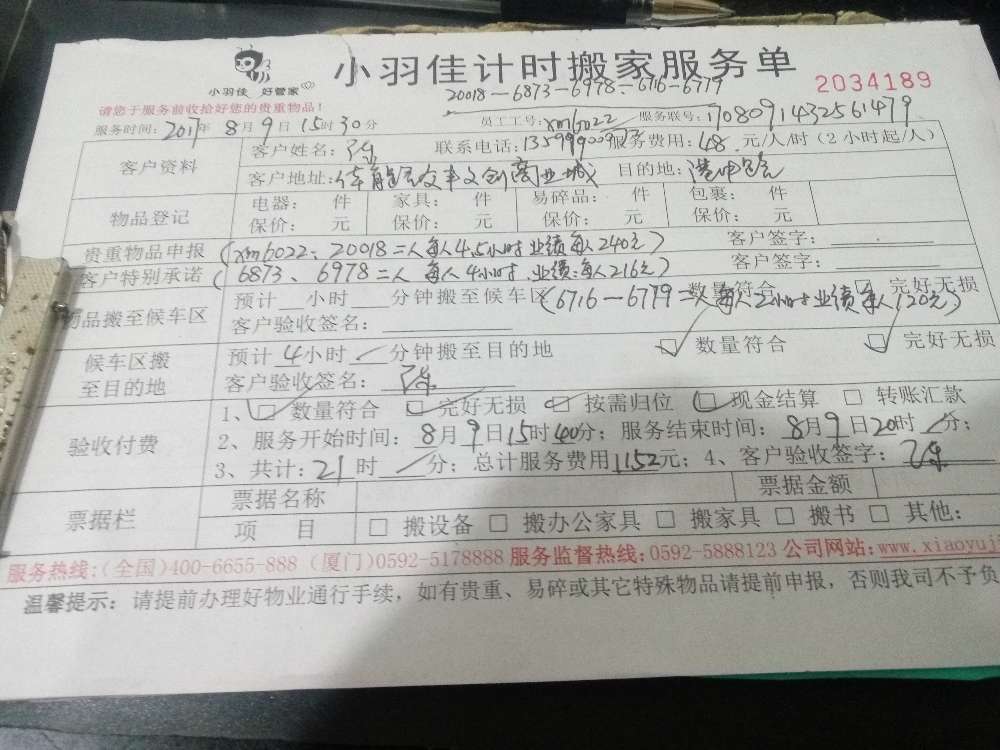 小羽佳计时搬家服务单
小羽佳 好管家
2034189
20018-6873-6978-6716-6779
请您于服务前收拾好您的贵重物品!
员工工号:xm6022 服务联号:1708091432561479
服务时间:2017年8月9日15时30分
客户资料
客户姓名:陈 联系电话:13599900 服务费用:48元/人/时(2小时起/人)
客户地址: 文创商业城 目的地:
物品登记
电器: 件 家具: 件 易碎品: 件 包裹: 件
保价: 元 保价: 元 保价: 元 保价: 元
贵重物品申报 (xm6022、20018二人每人4.5小时业绩每人240元) 客户签字:
客户特别承诺 (6873、6978二人每人4小时业绩:每人216元) 客户签字:
物品搬至候车区
预计 小时 分钟搬至候车区 数量符合 完好无损
(6716-6779二人每人2小时业绩每人120元)
客户验收签名:
候车区搬至目的地
预计4小时/分钟搬至目的地 数量符合 完好无损
客户验收签名:陈
验收付费
1、数量符合 完好无损 按需归位 现金结算 □ 转账汇款
2、服务开始时间:8月9日15时40分;服务结束时间:8月9日20时/分;
3、共计:21时/分;总计服务费用1152元;4、客户验收签字:陈
票据栏
票据名称 票据金额
项 目 □ 搬设备 □ 搬办公家具 □ 搬家具 □ 搬书 □ 其他:
服务热线:(全国)400-6655-888 (厦门)0592-5178888 服务监督热线:0592-5888123 公司网站:www.xiaoyuji
温馨提示:请提前办理好物业通行手续,如有贵重、易碎或其它特殊物品请提前申报,否则我司不予负